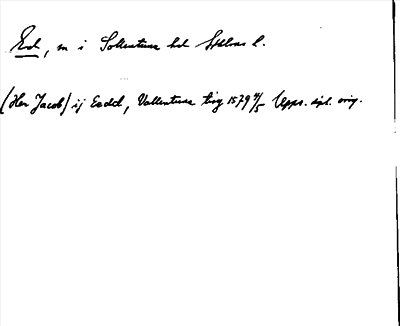 Ed, m i Sollentuna hd Sthlms l.
(Her Jacob) ij Eedd, Vallentuna ting 1579 4/5 Upps. dipl. orig.